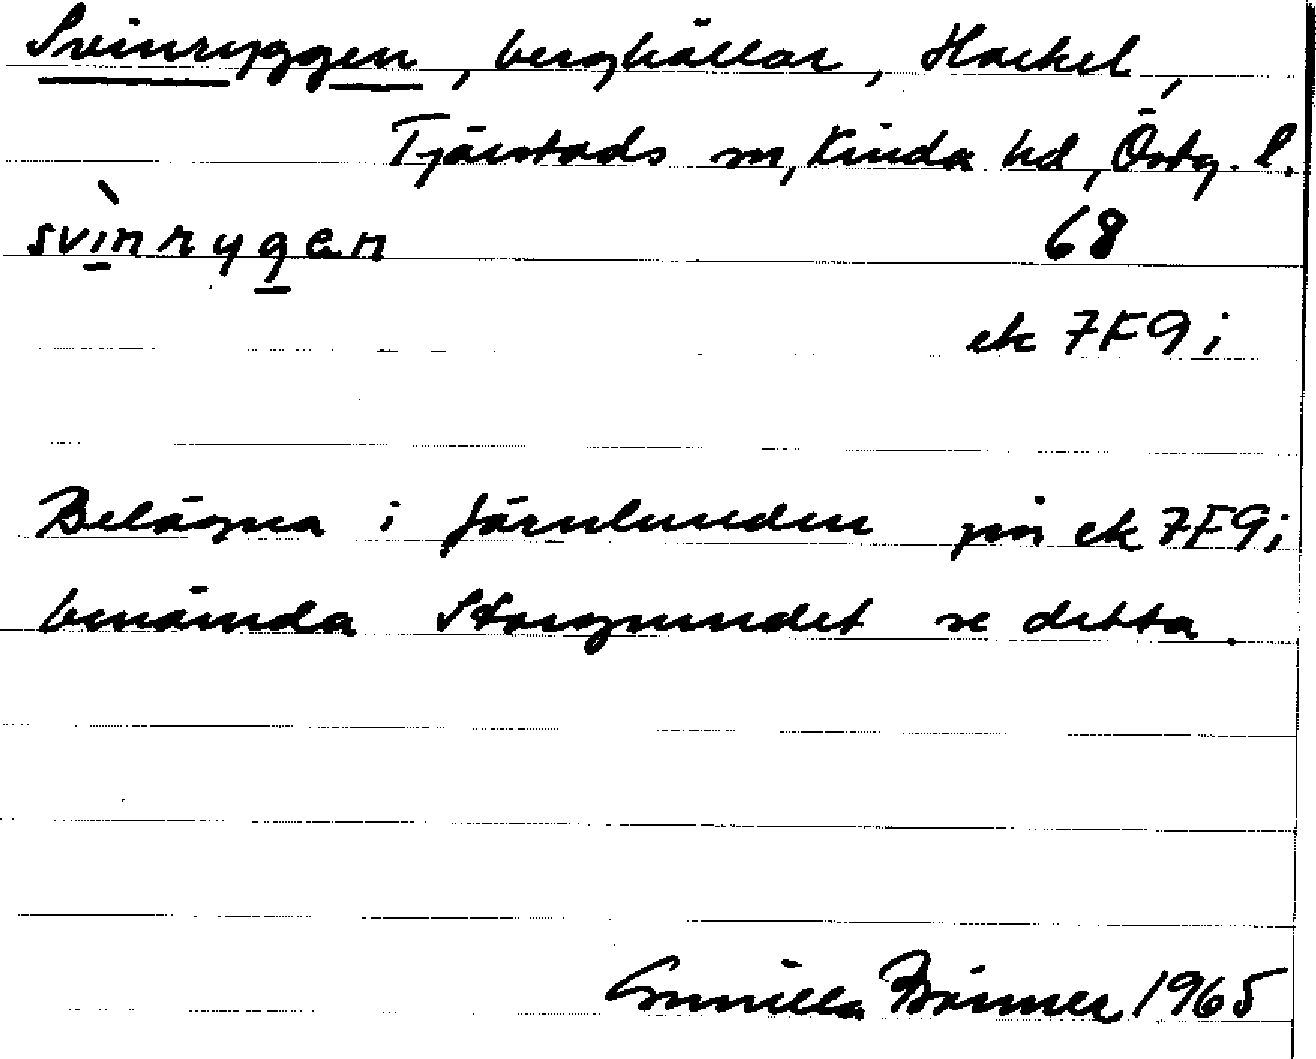 Svinryggen, berghällar, Hackel,
Tjärstads sn, Kinda hd, Östg. l.
svìnrygen
68
ek 7F9i
Belägna i Järnlunden på ek 7F9i
benämnda Storgrundet se detta.
Gunilla 1965